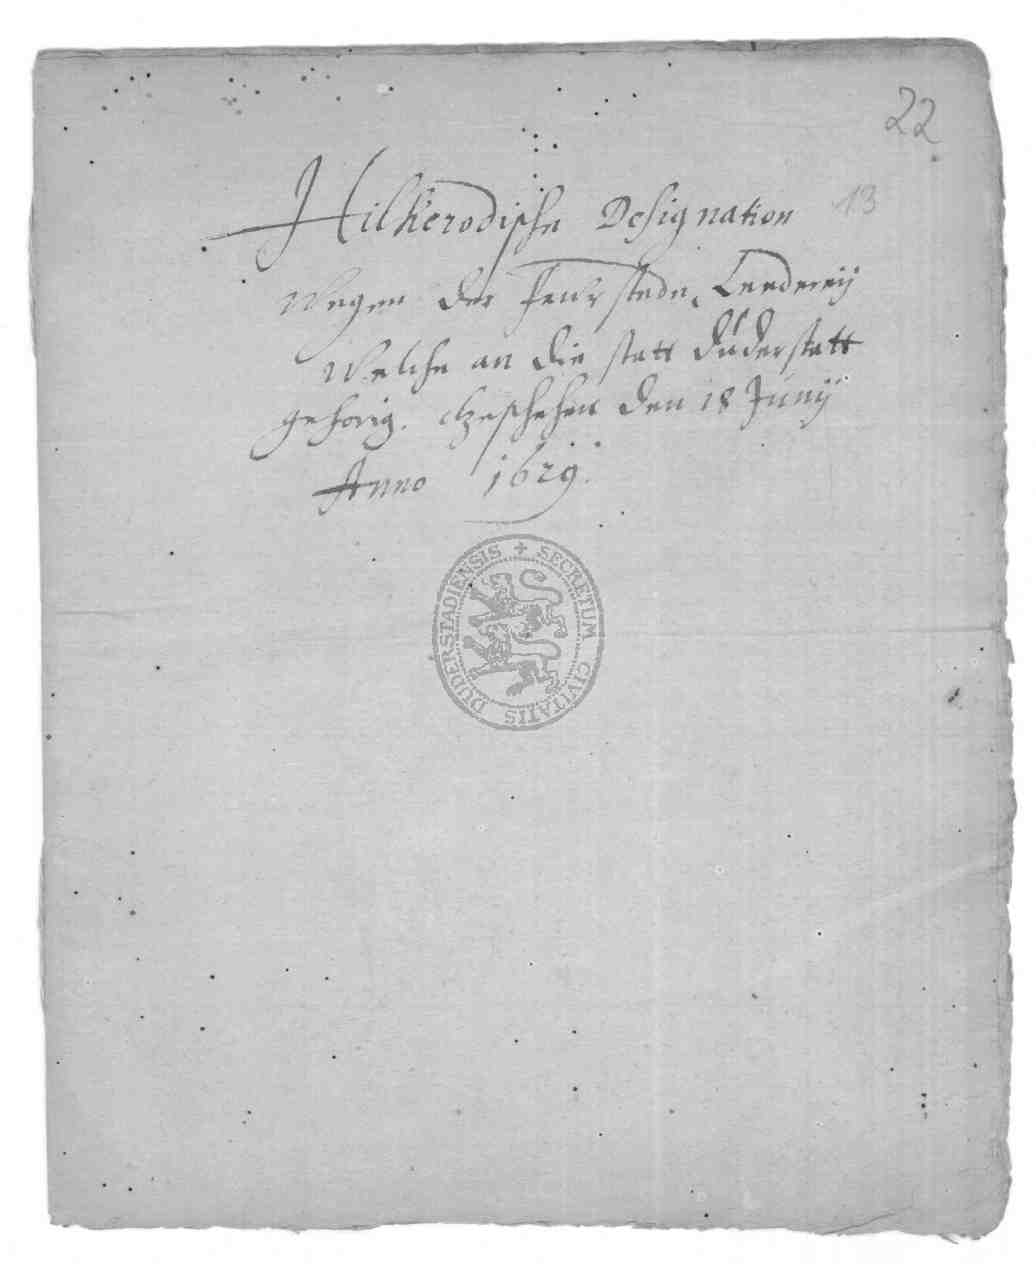 22
13
Hilkerodische Designation
Wegen der feürstede, Lendereÿ
Welche an die statt düderstatt
gehorig. Geschehen den 18 Junÿ
Anno 1629.
SECRETUM CIVITATIS DUDERSTADIENSIS